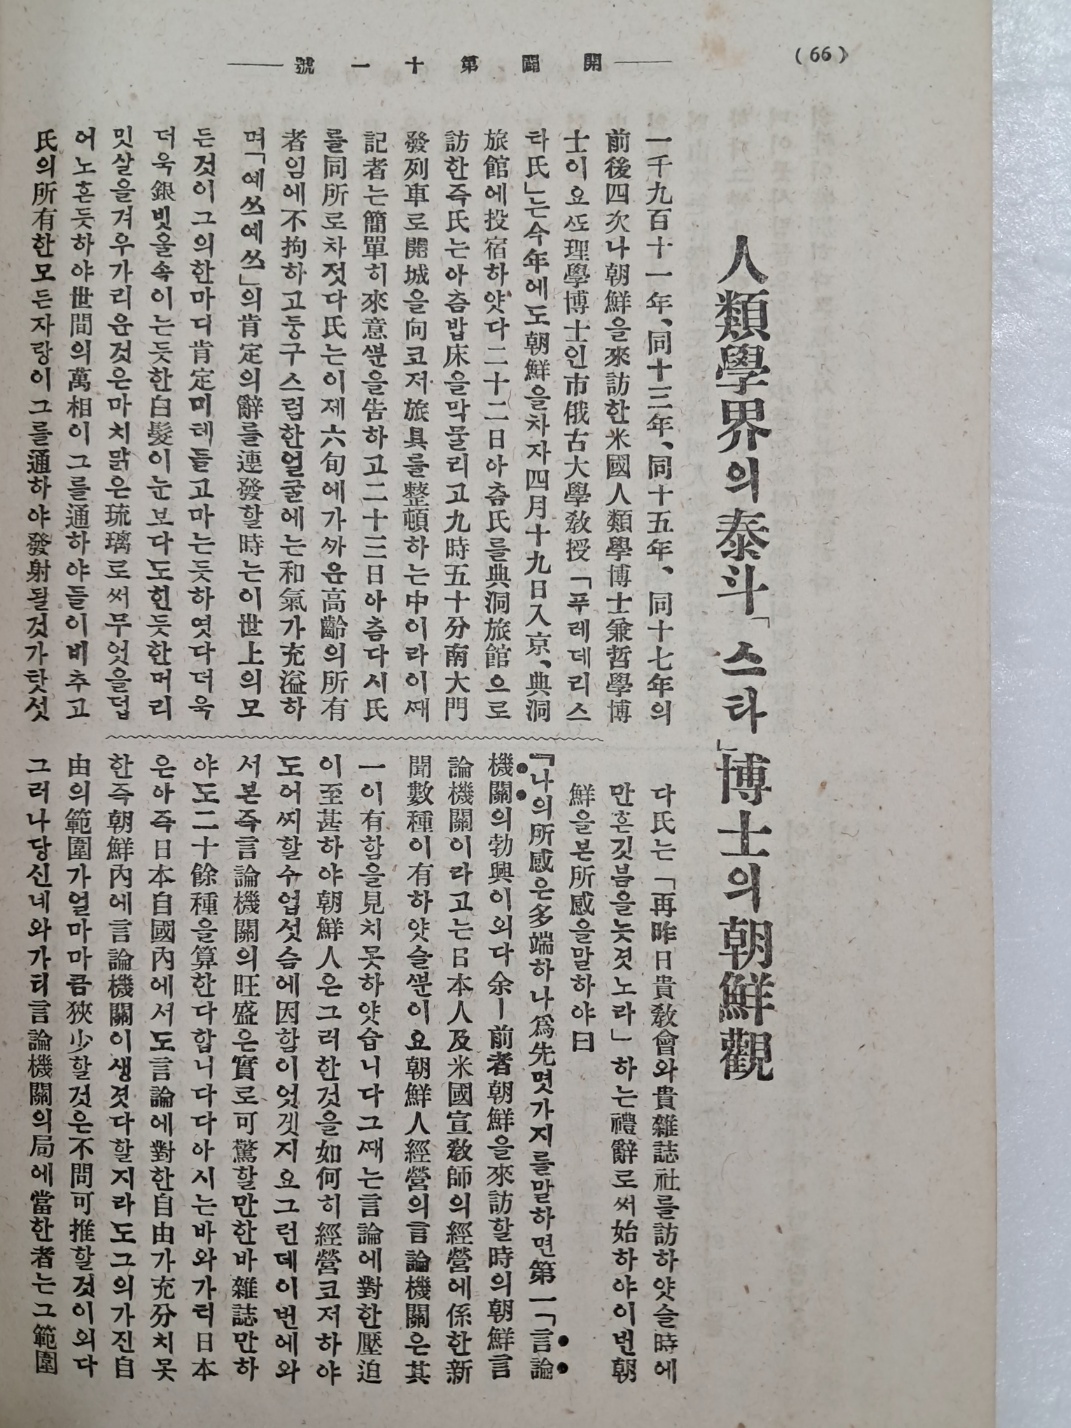 (66)
開闢第十一號
人類學界의泰斗「스타」博士의朝鮮觀
一千九百十一年、同十三年、同十五年、同十七年의
前後四次나朝鮮을來訪한米國人類學博士兼哲學博
士이요ᄯᅩ理學博士인市俄古大學敎授「푸레데리스
타氏」는今年에도朝鮮을차자四月十九日入京、典洞
旅館에投宿하얏다二十二日아츰氏를典洞旅館으로
訪한즉氏는아츰밥床을막물리고九時五十分南大門
發列車로開城을向코저旅具를整頓하는中이라이ᄯᅢ
記者는簡單히來意ᄲᅮᆫ을告하고二十三日아츰다시氏
를同所로차젓다氏는이제六旬에가ᄭᅡ윤高齡의所有
者임에不拘하고둥구스럼한얼굴에는和氣가充溢하
며「예쓰예쓰」의肯定의辭를連發할時는이世上의모
든것이그의한마듸肯定미테들고마는듯하엿다더욱
더욱銀빗을속이는듯한白髮이눈보다도힌듯한머리
밋살을겨우가리운것은마치맑은琉璃로써무엇을덥
어노흔듯하야世間의萬相이그를通하야들이비추고
氏의所有한모든자랑이그를通하야發射될것가탓섯
다氏는「再昨日貴敎會와貴雜誌社를訪하얏슬時에
만흔깃븜을늣겻노라」하는禮辭로써始하야이번朝
鮮을본所感을말하야曰
『나의所感은多端하나爲先몃가지를말하면第一「言論
機關의勃興이외다余ㅣ前者朝鮮을來訪할時의朝鮮言
論機關이라고는日本人及米國宣敎師의經營에係한新
聞數種이有하얏슬ᄲᅮᆫ이요朝鮮人經營의言論機關은其
一이有함을見치못하얏습니다그ᄯᅢ는言論에對한壓迫
이至甚하야朝鮮人은그러한것을如何히經營코저하야
도어ᄶᅵ할수업섯슴에因함이엇겟지요그런데이번에와
서본즉言論機關의旺盛은實로可驚할만한바雜誌만하
야도二十餘種을算한다합니다다아시는바와가티日本
은아즉日本自國內에서도言論에對한自由가充分치못
한즉朝鮮內에言論機關이생겻다할지라도그의가진自
由의範圍가얼마마큼狹少할것은不問可推할것이외다
그러나당신네와가티言論機關의局에當한者는그範圍